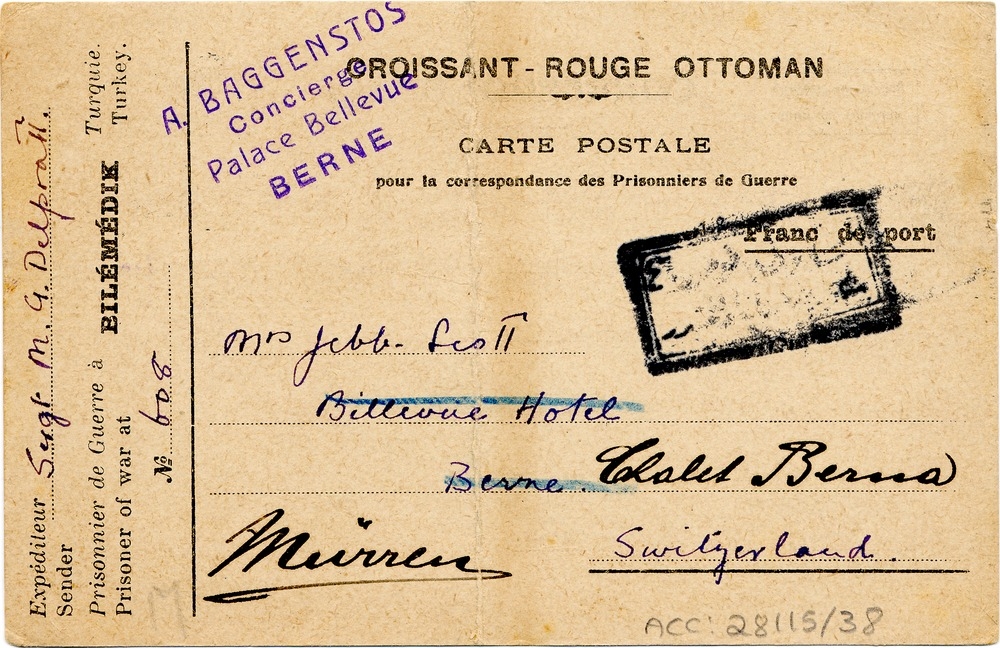 Expéditeur Sergt M. G. Delpratt.
Sender
Prisonnier de Guerre à BILÉMÉDIK Turquie.
Prisoner of war at Turkey.
№ 608
A. BAGGENSTOS
Concierge
Palace Bellevue
BERNE
CROISSANT-ROUGE OTTOMAN
CARTE POSTALE
pour la correspondance des Prisonniers de Guerre
Franc de port
Mrs Jebb-Scott
Bellevue Hotel
Berne. Chalet Berna
Mürren
Switzerland.
ACC: 28115/38